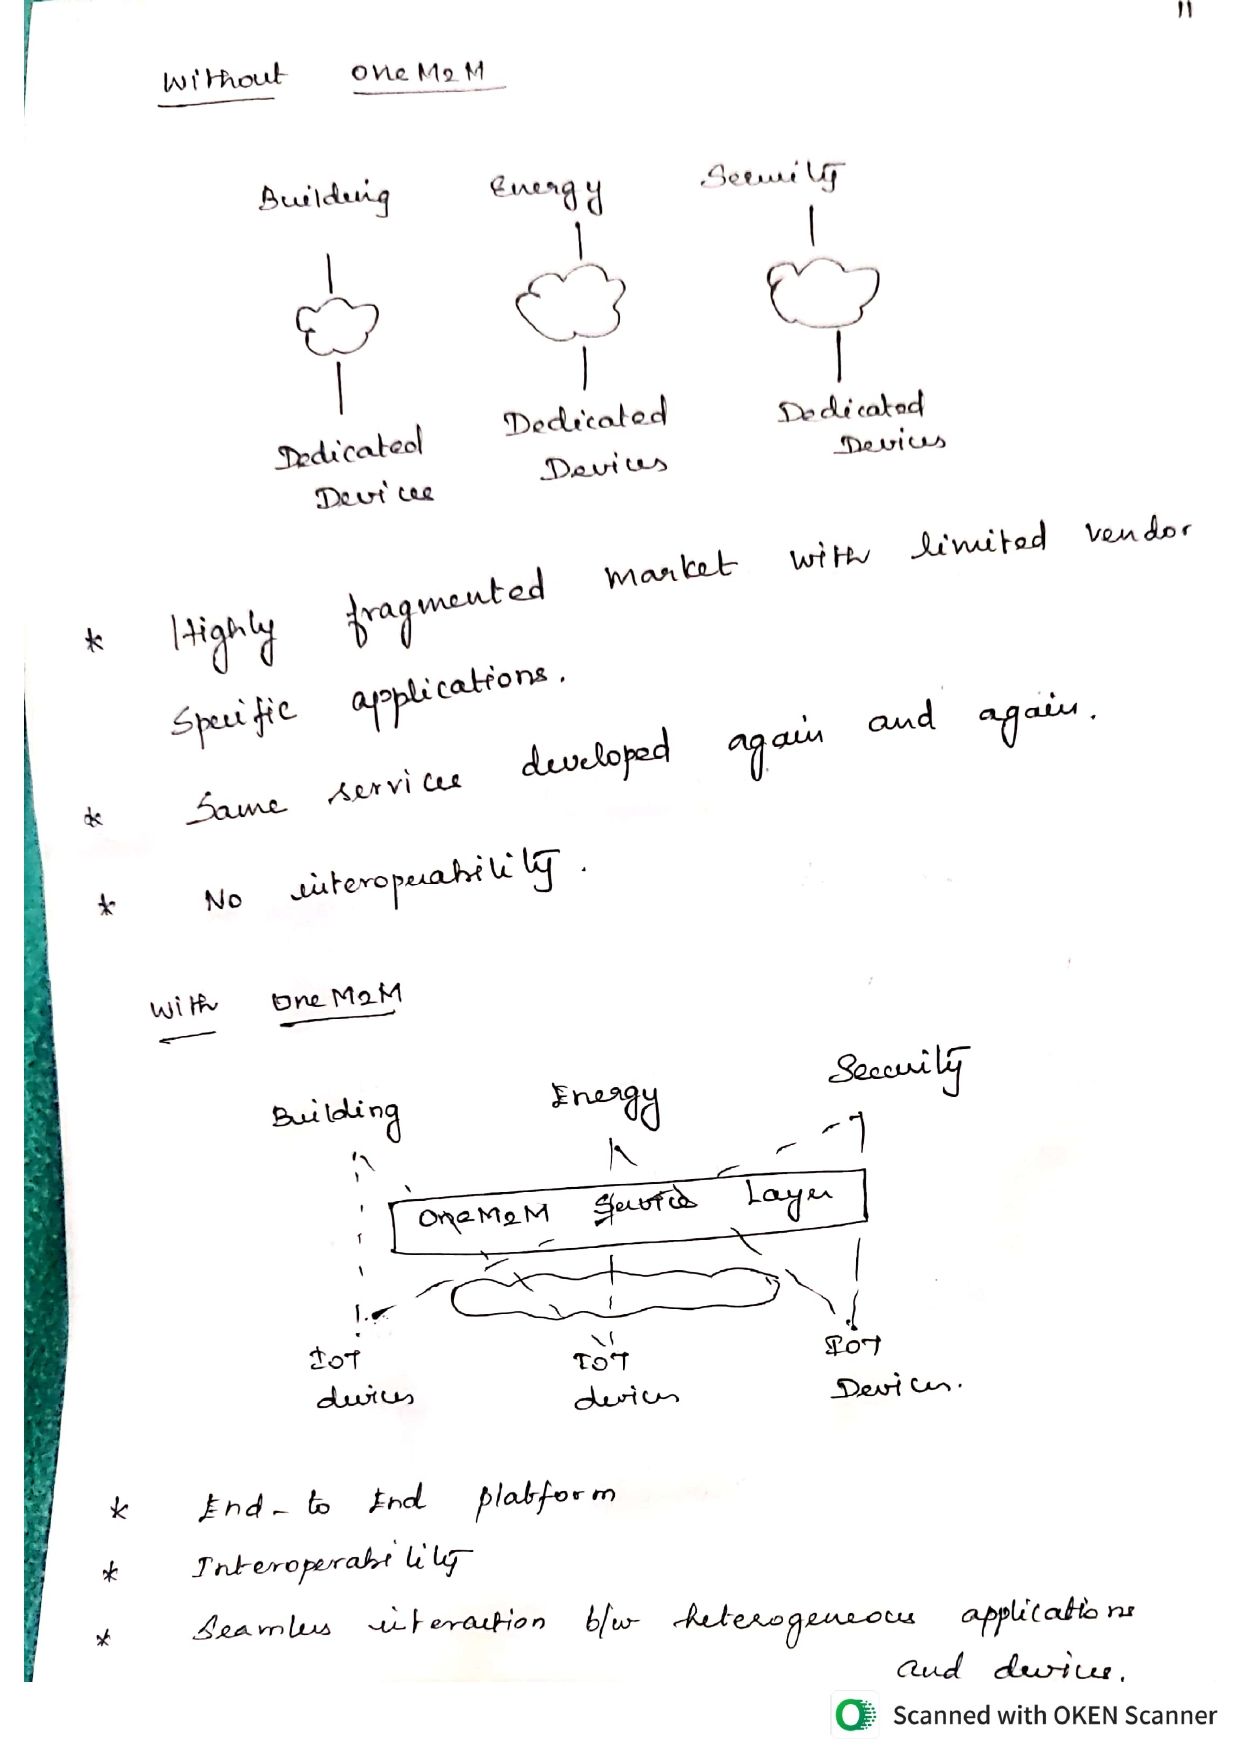 11
Without oneM2M
Building Energy Security
Dedicated Devices Dedicated Devices Dedicated Devices
* Highly fragmented market with limited vendor
specific applications.
* Same services developed again and again.
* No interoperability.
With OneM2M
Building Energy Security
OneM2M Service Layer
IOT devices IOT devices IOT Devices.
* End-to End platform
* Interoperability
* Seamless interaction b/w heterogeneous applications
and devices.
Scanned with OKEN Scanner